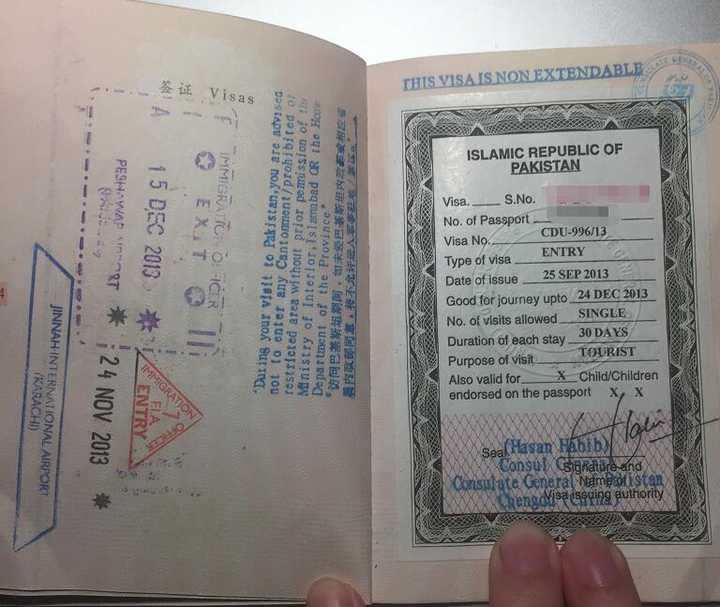 签证 Visas
IMMIGRATION OFFICER
EXIT
15 DEC 2013
PESHAWAR AIRPORT
JINNAH INTERNATIONAL AIRPORT
(KARACHI)
IMMIGRATION OFFICER
7
FIA
ENTRY
24 NOV 2013
"During your visit to Pakistan,you are advised
not to enter any Cantonment/prohibited or
restricted area without prior permission of the
Ministry of Interior,Islamabad OR the Home
Department of the Province"
THIS VISA IS NON EXTENDABLE
ISLAMIC REPUBLIC OF
PAKISTAN
Visa. S.No.
No. of Passport
Visa No. CDU-996/13
Type of visa ENTRY
Date of issue 25 SEP 2013
Good for journey upto 24 DEC 2013
No. of visits allowed SINGLE
Duration of each stay 30 DAYS
Purpose of visit TOURIST
Also valid for X Child/Children
endorsed on the passport X X
Seal (Hasan Habib)
Consul General
Signature and
Consulate General of Pakistan
Name of
Chengdu (China)
Visa issuing authority